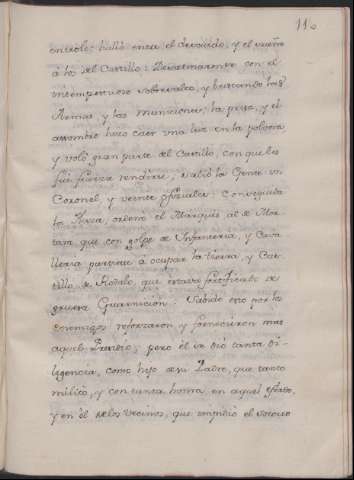 110
controle: halló entre el descuido, y el sueño
á los del Castillo: Desarmaronse con el
intempestivo sobresalto, y buscando las
Armas, y las municiones, la prisa, y el
assombro hizo caer una luz en la polvora
y voló gran parte del Castillo, con que les
fué fuerza rendirse; salió la Gente un
Coronel, y veinte oficiales: Conseguida
la Plaza, ordenó el Marques al de Mor-
tara, que con golpe de Infanteria, y Cava-
lleria partiese á ocupar la tierra, y Cas-
tillo de Rodalo, que estava fortificado de
gruesa Guarnicion: Sabido esto por los
Enemigos reforzaron y fornecieron mas
aquel Presidio; pero él se dio tanta di-
ligencia, como hijo de su Padre, que tanto
militó, y con tanta honra, en aquel estado,
y en él de los vecinos, que impidió el socorro